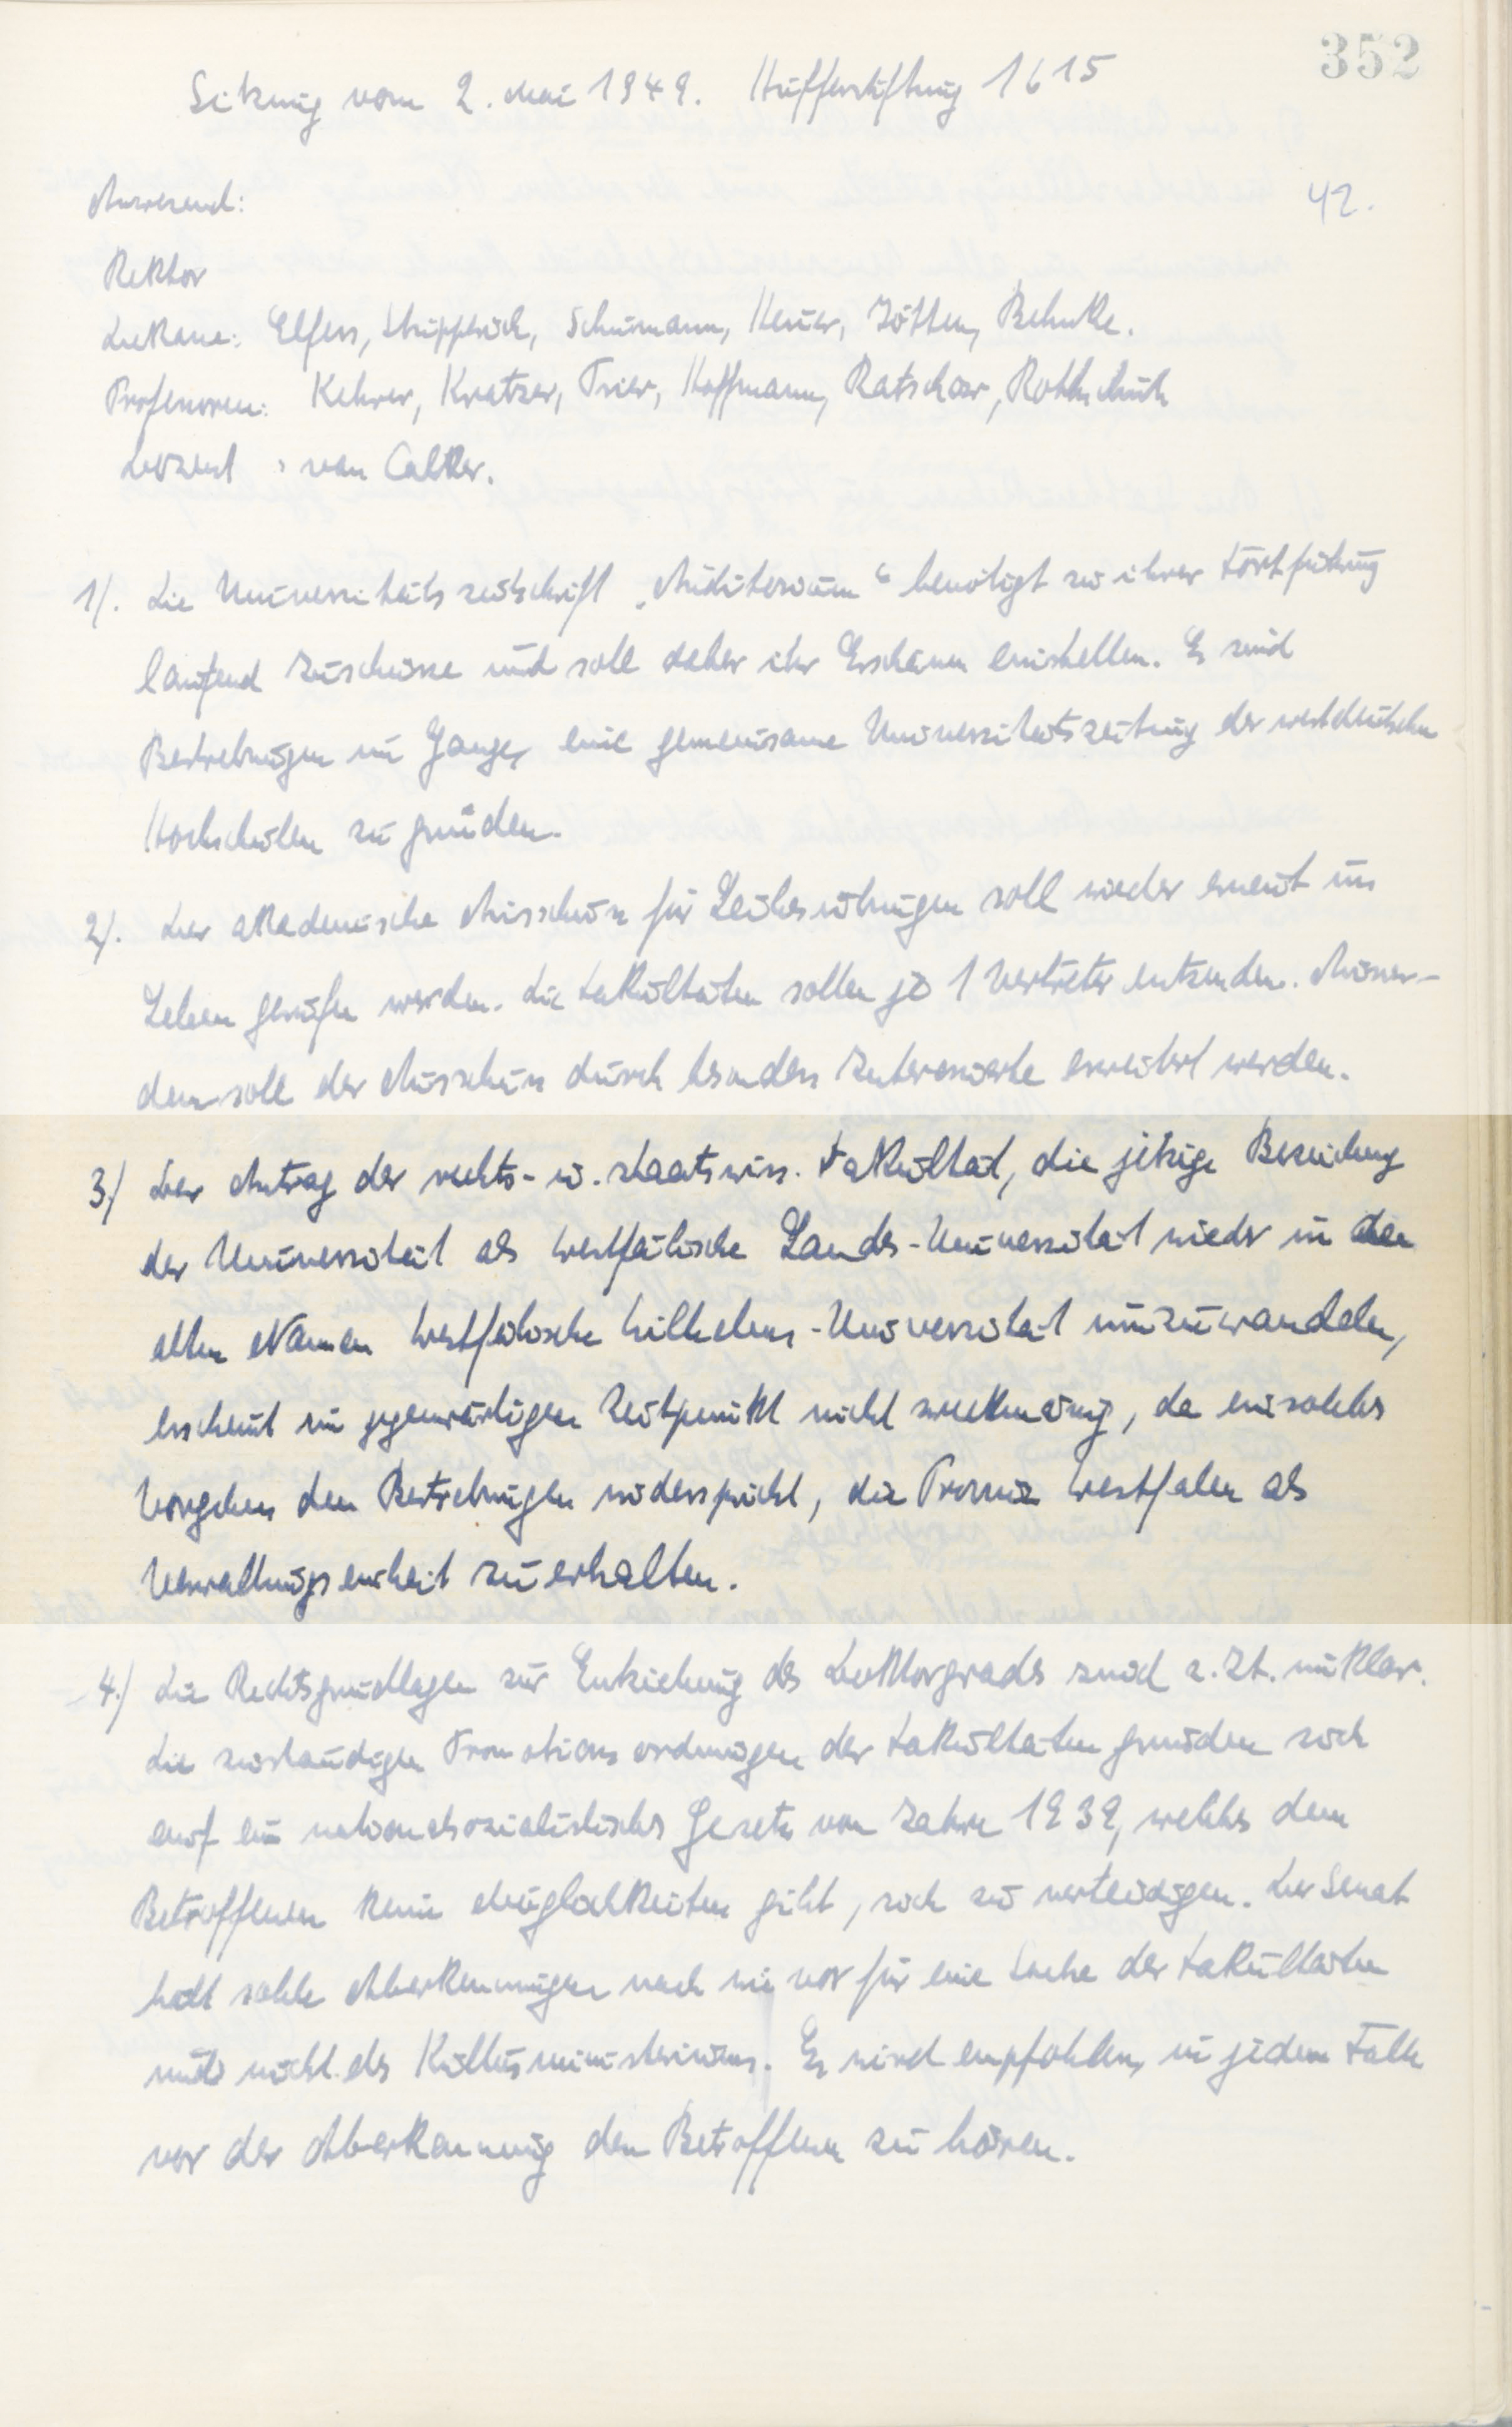 352
Sitzung vom 2. Mai 1949. Hüfferstiftung 16 15
42.
Anwesend:
Rektor
Dekane: Elfers, Stupperich, Schumann, Heuer, Jötten, Behnke.
Professoren: Kehrer, Kratzer, Trier, Hoffmann, Ratschow, Rothschuh
Dozent : van Calker.
1). Die Universitätszeitschrift „Auditorium“ benötigt zu ihrer Fortführung
laufend Zuschüsse und soll daher ihr Erscheinen einstellen. Es sind
Bestrebungen im Gange, eine gemeinsame Universitätszeitung der westdeutschen
Hochschulen zu gründen.
2). Der akademische Ausschuss für Leibesübungen soll wieder erneut ins
Leben gerufen werden. Die Fakultäten sollen je 1 Vertreter entsenden. Ausser-
dem soll der Ausschuss durch besonders Interessierte erweitert werden.
3.) Der Antrag der rechts- u. staatswiss. Fakultät, die jetzige Bezeichnung
der Universität als Westfälische Landes-Universität wieder in den
alten Namen Westfälische Wilhelms-Universität umzuwandeln,
erscheint im gegenwärtigen Zeitpunkt nicht zweckmässig, da ein solches
Vorgehen den Bestrebungen widerspricht, die Provinz Westfalen als
Verwaltungseinheit zu erhalten.
4.) Die Rechtsgrundlagen zur Entziehung des Doktorgrades sind z. Zt. unklar.
Die zuständigen Promotionsordnungen der Fakultäten gründen sich
auf ein nationalsozialistisches Gesetz vom Jahre 1939, welches dem
Betroffenen keine Möglichkeiten gibt, sich zu verteidigen. Der Senat
hält solche Aberkennungen nach wie vor für eine Sache der Fakultäten
und nicht des Kultusministeriums. Es wird empfohlen, in jedem Falle
vor der Aberkennung den Betroffenen zu hören.